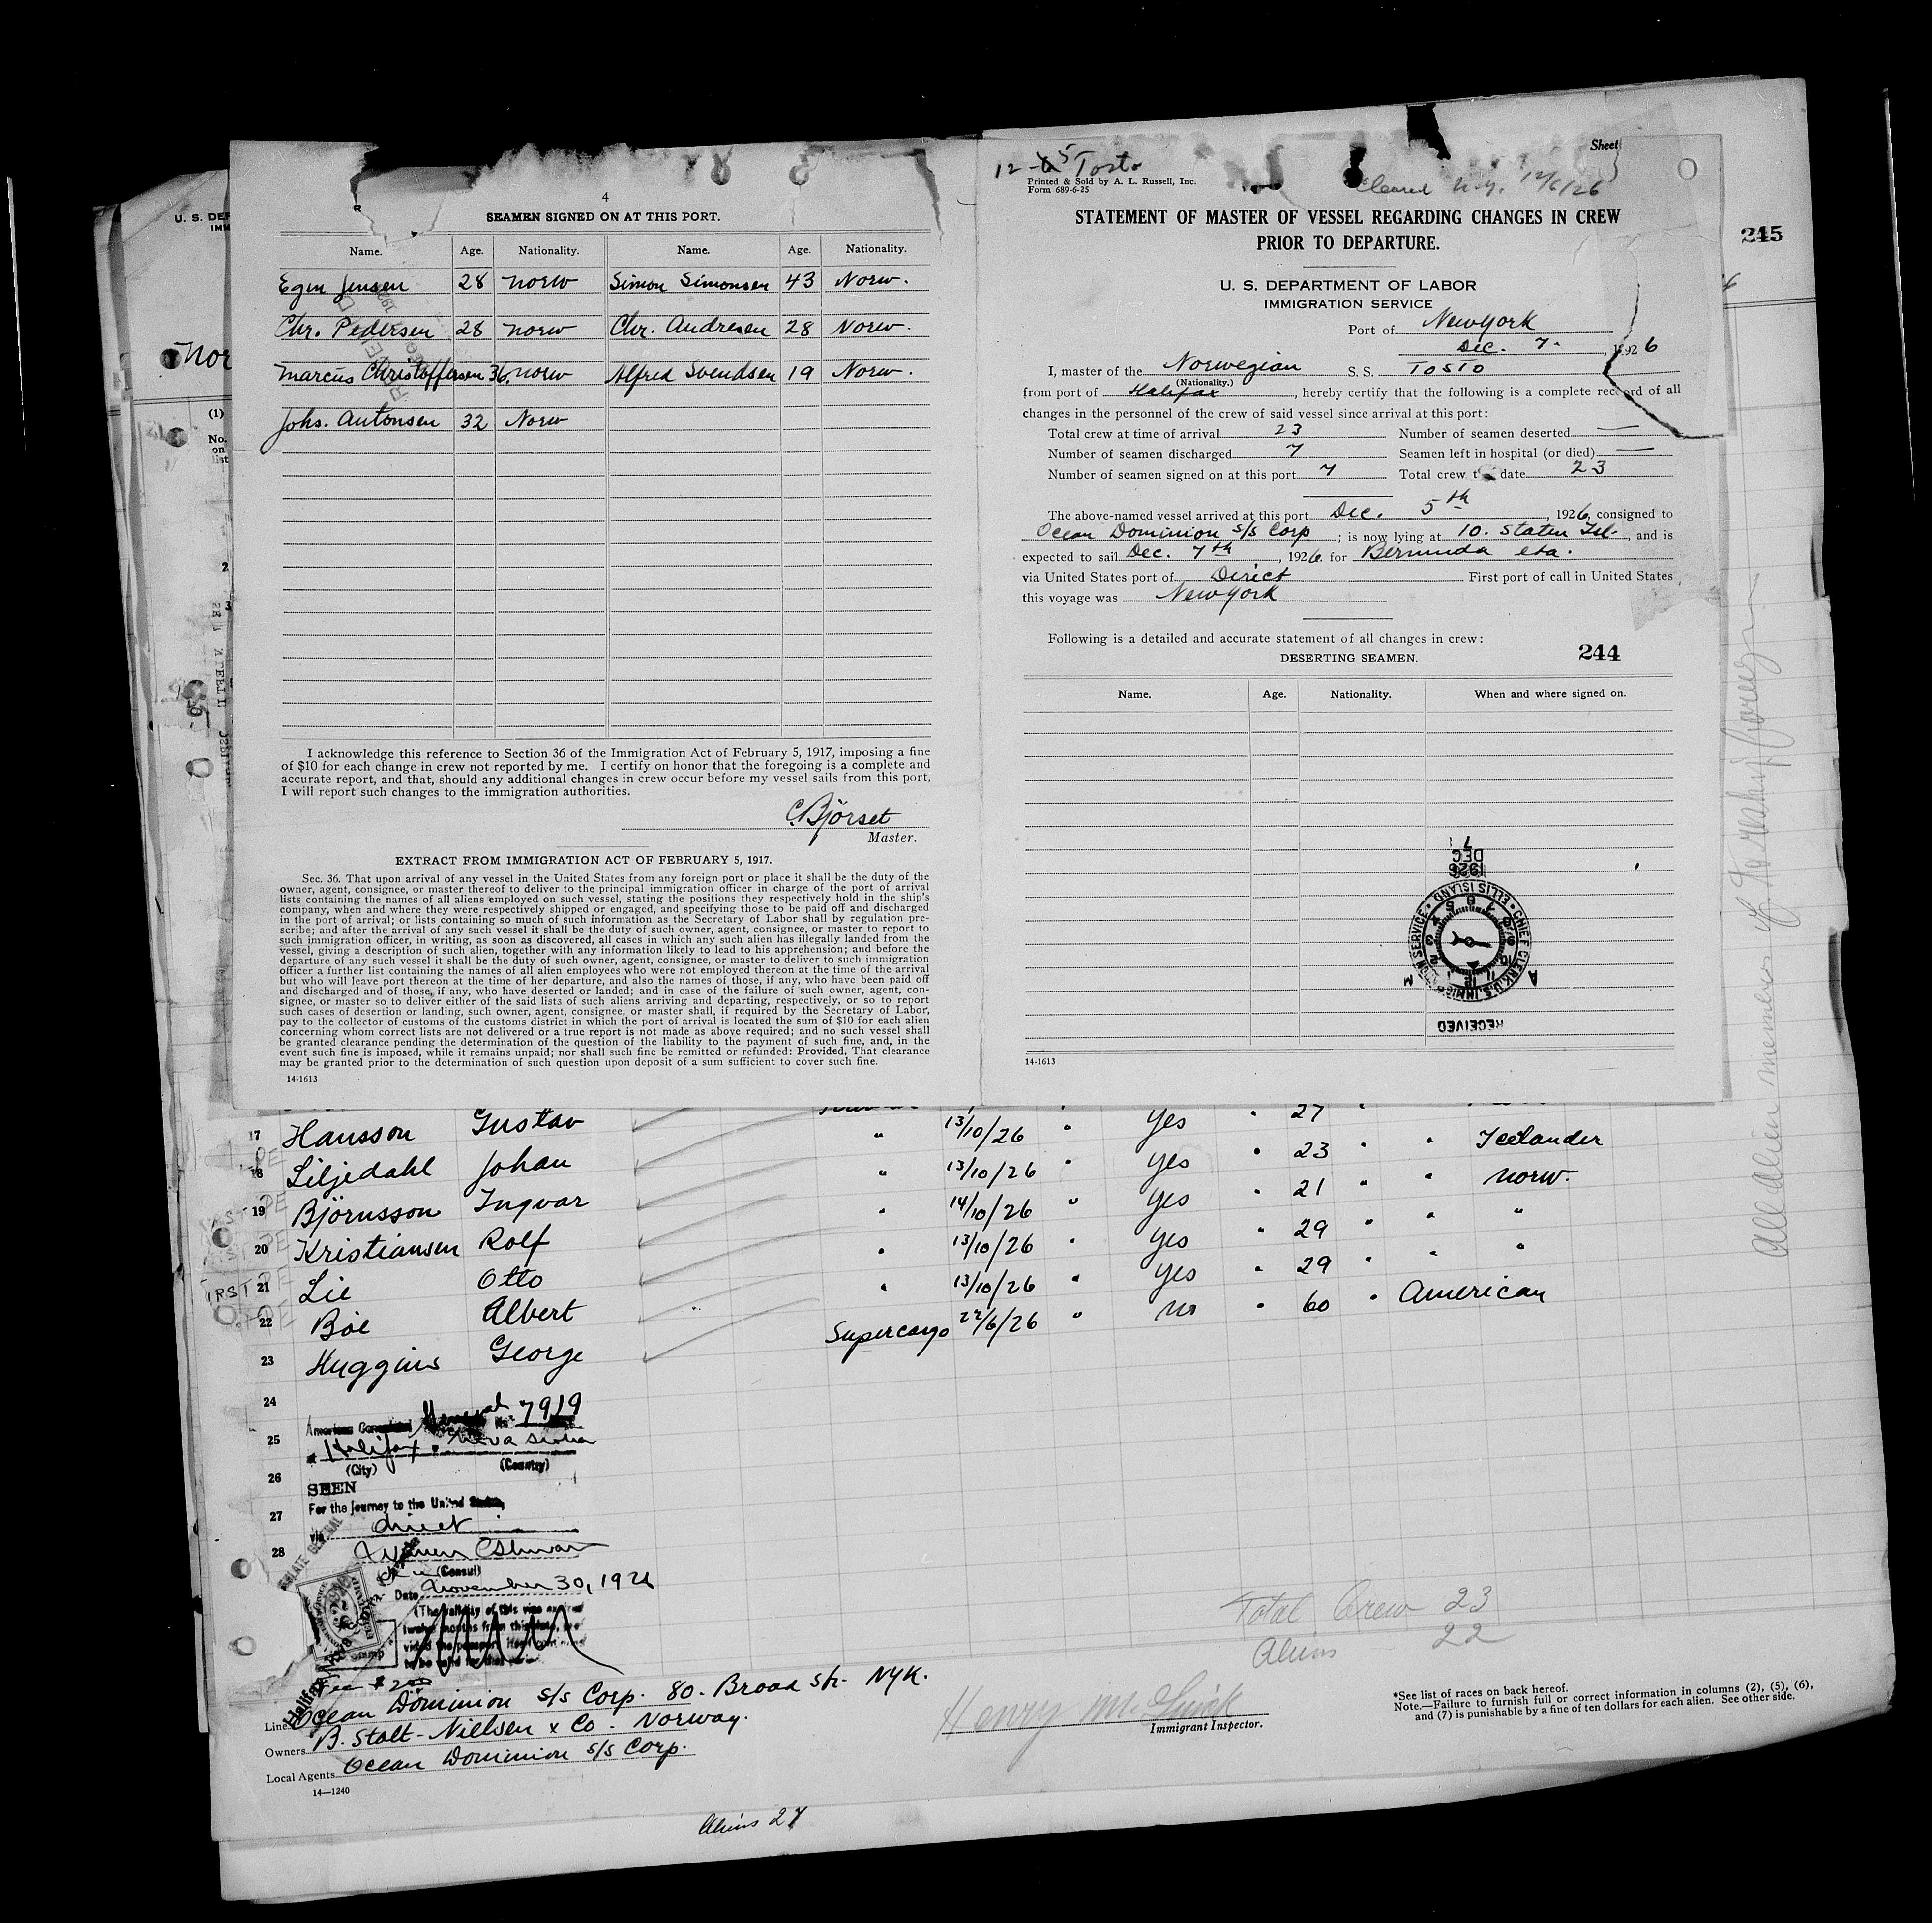 4
SEAMEN SIGNED ON AT THIS PORT.
Name. Age. Nationality. Name. Age. Nationality.
Egm Jensen 28 norw Simon Simonsen 43 Norw.
Chr. Pedersen 28 norw Chr. Andresen 28 Norw.
Marcus Christoffersen 36, norw Alfred Svendsen 19 Norw.
Johs. Antonsen 32 Norw
I acknowledge this reference to Section 36 of the Immigration Act of February 5, 1917, imposing a fine
of $10 for each change in crew not reported by me. I certify on honor that the foregoing is a complete and
accurate report, and that, should any additional changes in crew occur before my vessel sails from this port,
I will report such changes to the immigration authorities.
C. Bjorset
Master.
EXTRACT FROM IMMIGRATION ACT OF FEBRUARY 5, 1917.
Sec. 36. That upon arrival of any vessel in the United States from any foreign port or place it shall be the duty of the
owner, agent, consignee, or master thereof to deliver to the principal immigration officer in charge of the port of arrival
lists containing the names of all aliens employed on such vessel, stating the positions they respectively hold in the ship's
company, when and where they were respectively shipped or engaged, and specifying those to be paid off and discharged
in the port of arrival; or lists containing so much of such information as the Secretary of Labor shall by regulation pre-
scribe; and after the arrival of any such vessel it shall be the duty of such owner, agent, consignee, or master to report to
such immigration officer, in writing, as soon as discovered, all cases in which any such alien has illegally landed from the
vessel, giving a description of such alien, together with any information likely to lead to his apprehension; and before the
departure of any such vessel it shall be the duty of such owner, agent, consignee, or master to deliver to such immigration
officer a further list containing the names of all alien employees who were not employed thereon at the time of the arrival
but who will leave port thereon at the time of her departure, and also the names of those, if any, who have been paid off
and discharged and of those, if any, who have deserted or landed; and in case of the failure of such owner, agent, con-
signee, or master so to deliver either of the said lists of such aliens arriving and departing, respectively, or so to report
such cases of desertion or landing, such owner, agent, consignee, or master shall, if required by the Secretary of Labor,
pay to the collector of customs of the customs district in which the port of arrival is located the sum of $10 for each alien
concerning whom correct lists are not delivered or a true report is not made as above required; and no such vessel shall
be granted clearance pending the determination of the question of the liability to the payment of such fine, and, in the
event such fine is imposed, while it remains unpaid; nor shall such fine be remitted or refunded: Provided, That clearance
may be granted prior to the determination of such question upon deposit of a sum sufficient to cover such fine.
14-1613
12-5 Tosto
Sheet
Printed & Sold by A. L. Russell, Inc.
Form 689-6-25
Cleared N.Y. 12/6/26
STATEMENT OF MASTER OF VESSEL REGARDING CHANGES IN CREW
PRIOR TO DEPARTURE.
U. S. DEPARTMENT OF LABOR
IMMIGRATION SERVICE
Port of New York
Dec. 7. 1926
I, master of the Norwegian S. S. TOSTO
(Nationality.)
from port of Halifax, hereby certify that the following is a complete record of all
changes in the personnel of the crew of said vessel since arrival at this port:
Total crew at time of arrival 23 Number of seamen deserted —
Number of seamen discharged 7 Seamen left in hospital (or died) —
Number of seamen signed on at this port 7 Total crew to date 23
The above-named vessel arrived at this port Dec. 5th, 1926, consigned to
Ocean Dominion s/s Corp; is now lying at 10. Staten Isl., and is
expected to sail Dec. 7th, 1926. for Bermuda eta.
via United States port of Direct First port of call in United States
this voyage was New York
Following is a detailed and accurate statement of all changes in crew:
DESERTING SEAMEN. 244
Name. Age. Nationality. When and where signed on.
7
DEC
1926
CHIEF CLERK U.S. IMMIGRATION SERVICE • ELLIS ISLAND
RECEIVED
14-1613
245
U. S. DEP
17 Hansson Gustav " 13/10/26 " Yes " 27 "
18 Liljedahl Johan " 13/10/26 " Yes " 23 " " Icelander
19 Björnsson Ingvar " 14/10/26 " Yes " 21 " " norw.
20 Kristiansen Rolf " 13/10/26 " Yes " 29 " " "
21 Lie Otto " 13/10/26 " Yes " 29 " " "
22 Böe Albert
23 Huggins George Supercargo 22/6/26 " no " 60 " American
24
25
26
27
28
American Consulate General No. 7919
at Halifax Nova Scotia
(City) (Country)
SEEN
For the Journey to the United States,
via direct
(Consul)
Date November 30, 1926
Fee $2.00
Total Crew 23
Aliens 22
Line Ocean Dominion s/s Corp. 80. Broad str. NYK.
Owners B. Stolt-Nielsen & Co. Norway.
Local Agents Ocean Dominion s/s Corp.
14—1240
Immigrant Inspector.
*See list of races on back hereof.
Note.—Failure to furnish full or correct information in columns (2), (5), (6),
and (7) is punishable by a fine of ten dollars for each alien. See other side.